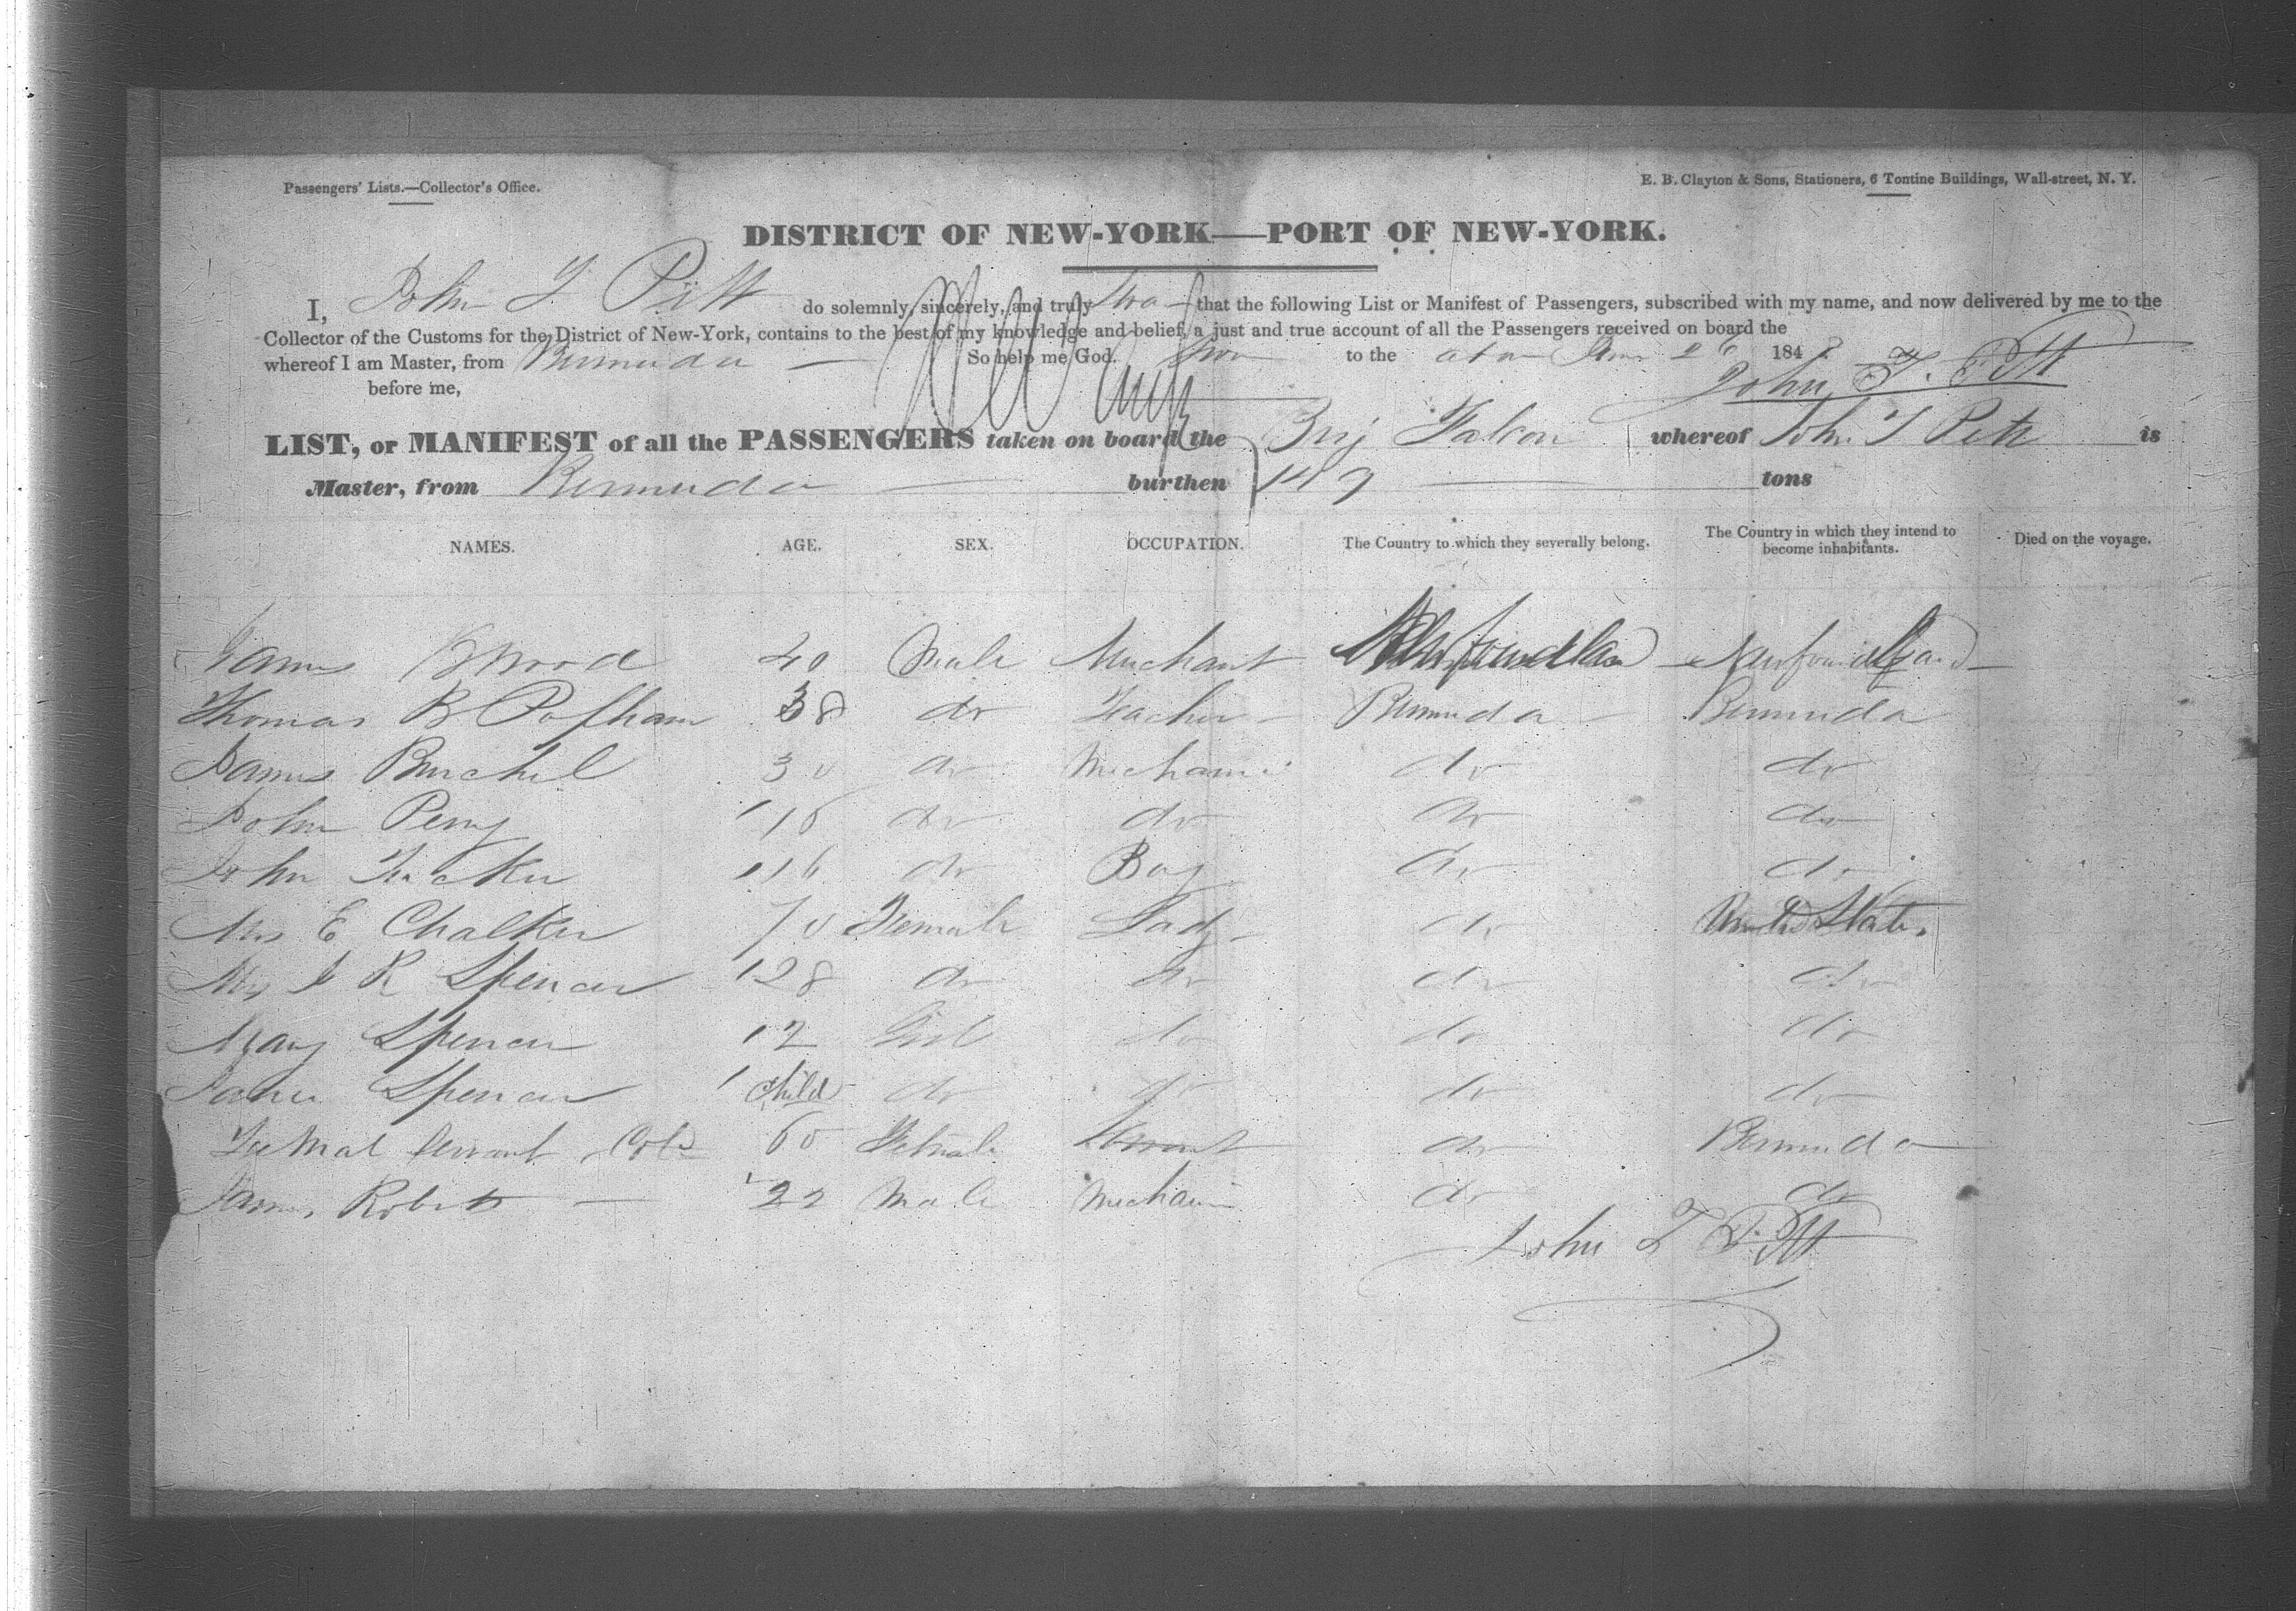 Passengers' Lists.—Collector's Office.
E. B. Clayton & Sons, Stationers, 6 Tontine Buildings, Wall-street, N. Y.
DISTRICT OF NEW-YORK—PORT OF NEW-YORK.
I, John T. Pitt do solemnly, sincerely, and truly that the following List or Manifest of Passengers, subscribed with my name, and now delivered by me to the
Collector of the Customs for the District of New-York, contains to the best of my knowledge and belief, a just and true account of all the Passengers received on board the
whereof I am Master, from Bermuda — So help me God. to the 26 184
before me, John T. Pitt
LIST, or MANIFEST of all the PASSENGERS taken on board the Brig Falcon whereof John T Pitt is
Master, from Bermuda — burthen 149 — tons
NAMES. AGE. SEX. OCCUPATION. The Country to which they severally belong. The Country in which they intend to become inhabitants. Died on the voyage.
James B Wood 40 Male Merchant Newfoundlan — Newfoundland —
Thomas B Popham 38 do Teacher — Bermuda — Bermuda
James Burchel 30 do Mechanic do do
John Perry 18 do do do do
John Tucker 16 do Boy do do
Mrs E Chalker 70 Female Lady — do United State.
Mrs J R Spencer 28 do do do do
Mary Spencer 12 Girl do do do
Spencer Child do do do do
Servant Col 60 Female Servant do Bermuda
James Roberts — 22 Male Mechanic do do
John T Pitt